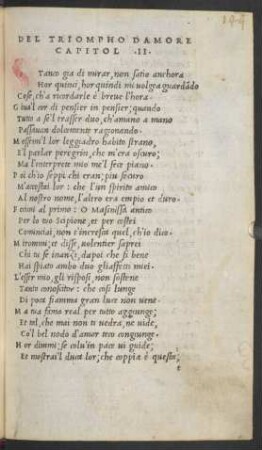 DEL TRIOMPHO D'AMORE
CAPITOL .II.
Stanco gia di mirar, non satio anchora
Hor quinci, hor quindi mi volgea guardãdo
Cose, ch'a ricordarle è breue l'hora.
Giua'l cor di pensier in pensier; quando
Tutto a se'l trasser duo, ch'a mano a mano
Passauan dolcemente ragionando.
Mossimi'l lor leggiadro habito strano,
E'l parlar peregrin, che m'era oscuro;
Ma l'interprete mio me'l fece piano.
Poi ch'io seppi chi eran; piu securo
M'accostai lor: che l'un spirito amico
Al nostro nome, l'altro era empio et duro.
Fecimi al primo: O Massinissa antico
Per lo tuo Scipione, et per costei
Cominciai, non t'incresca quel, ch'io dico.
Mirommi; et disse, volentier saprei
Chi tu se inanzi; dapoi che si bene
Hai spiato ambo duo gliaffetti miei.
L'esser mio, gli risposi, non sostene
Tanto conoscitor: che cosi lunge
Di poca fiamma gran luce non vene.
Ma tua fama real per tutto aggiunge;
Et tal, che mai non ti uedrà, ne uide,
Co'l bel nodo d'amor teco congiunge.
Hor dimmi; se colu'in pace ui guide;
Et mostrai'l duca lor; che coppia è questa;
e